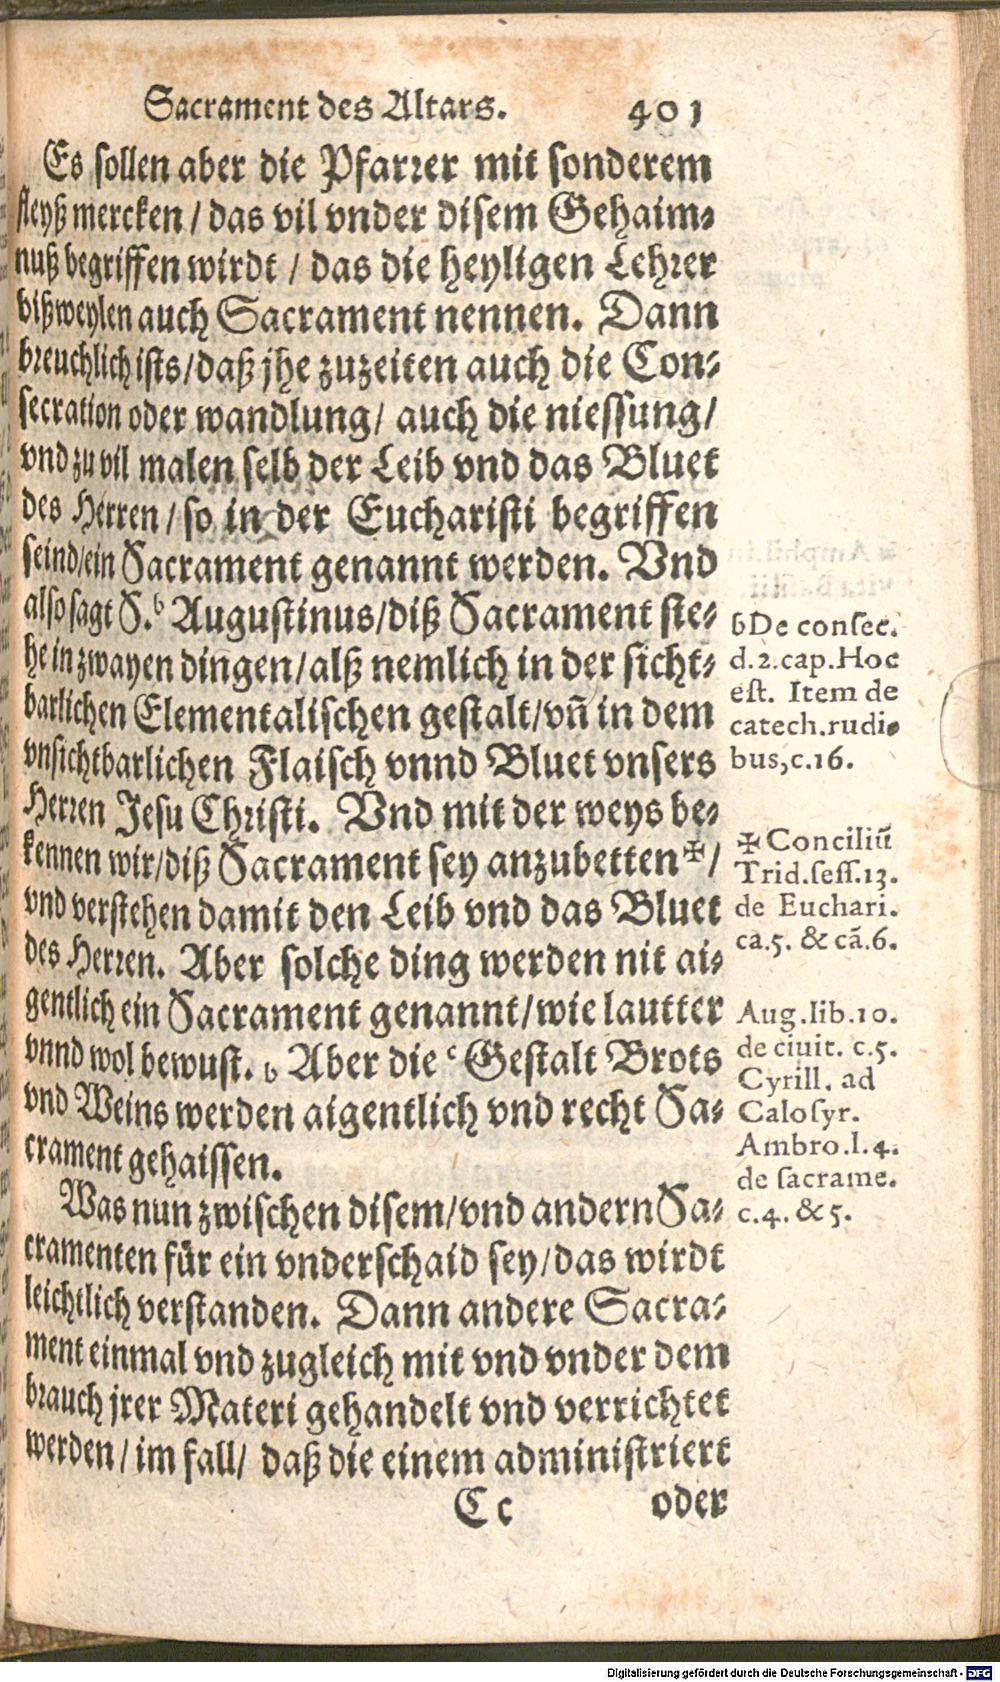 Sacrament des Altars. 401
Es sollen aber die Pfarrer mit sonderem
fleyß mercken / das vil vnder disem Gehaim⸗
nuß begriffen wirdt / das die heyligen Lehrer
bißweylen auch Sacrament nennen. Dann
breuchlich ists / daß jhe zuzeiten auch die Con⸗
secration oder wandlung / auch die niessung /
vnd zu vil malen selb der Leib vnd das Bluet
des Herren / so in der Eucharisti begriffen
seind / ein Sacrament genannt werden. Vnd
also sagt S. b Augustinus / diß Sacrament ste⸗
he in zwayen dingen / alß nemlich in der sicht⸗
barlichen Elementalischen gestalt / vñ in dem
vnsichtbarlichen Flaisch vnnd Bluet vnsers
Herren Jesu Christi. Vnd mit der weys be⸗
kennen wir / diß Sacrament sey anzubetten ✠ /
vnd verstehen damit den Leib vnd das Bluet
des Herren. Aber solche ding werden nit ai⸗
gentlich ein Sacrament genannt / wie lautter
vnnd wol bewust. b Aber die c Gestalt Brots
vnd Weins werden aigentlich vnd recht Sa⸗
crament gehaissen.
Was nun zwischen disem / vnd andern Sa⸗
cramenten für ein vnderschaid sey / das wirdt
leichtlich verstanden. Dann andere Sacra⸗
ment einmal vnd zugleich mit vnd vnder dem
brauch jrer Materi gehandelt vnd verrichtet
werden / im fall / daß die einem administriert
Cc oder
b De consec.
d.2.cap.Hoc
est. Item de
catech.rudi⸗
bus, c.16.
✠ Conciliũ
Trid.sess.13.
de Euchari.
ca.5. & cã.6.
Aug.lib.10.
de ciuit. c.5.
Cyrill. ad
Calosyr.
Ambro.l.4.
de sacrame.
c.4. & 5.
Digitalisierung gefördert durch die Deutsche Forschungsgemeinschaft - DFG